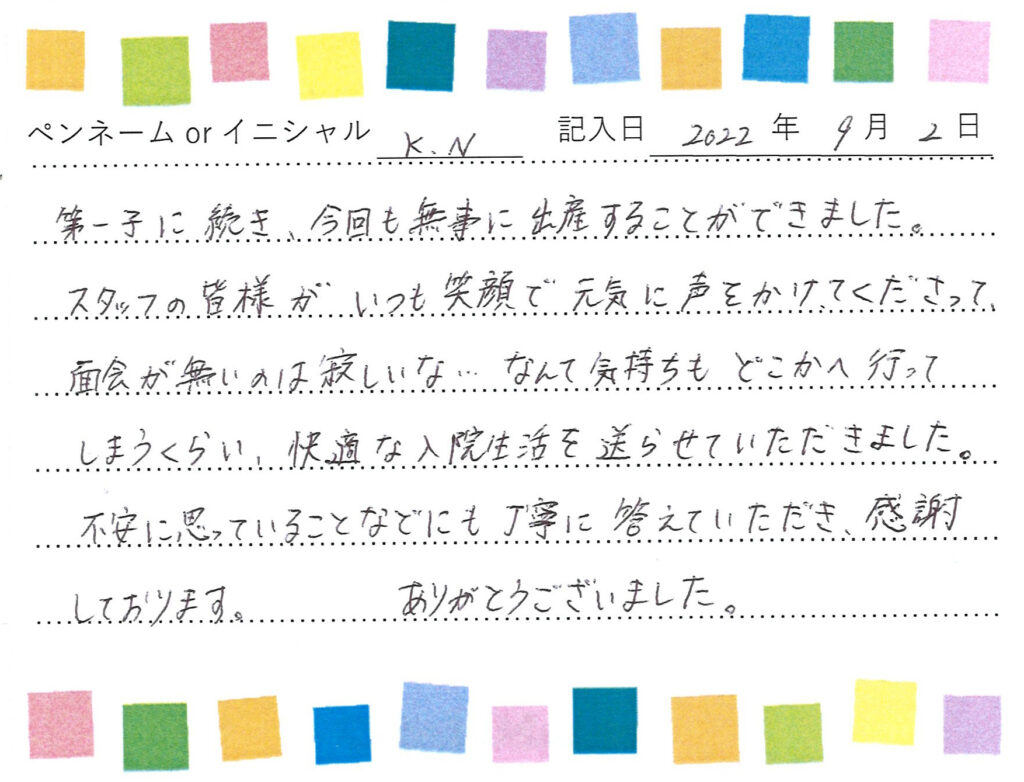 ペンネーム or イニシャル K.N 記入日 2022 年 9 月 2 日
第一子に続き、今回も無事に出産することができました。
スタッフの皆様がいつも笑顔で元気に声をかけてくださって、
面会が無いのは寂しいな… なんて気持ちもどこかへ行って
しまうくらい、快適な入院生活を送らせていただきました。
不安に思っていることなどにも丁寧に答えていただき、感謝
しております。 ありがとうございました。